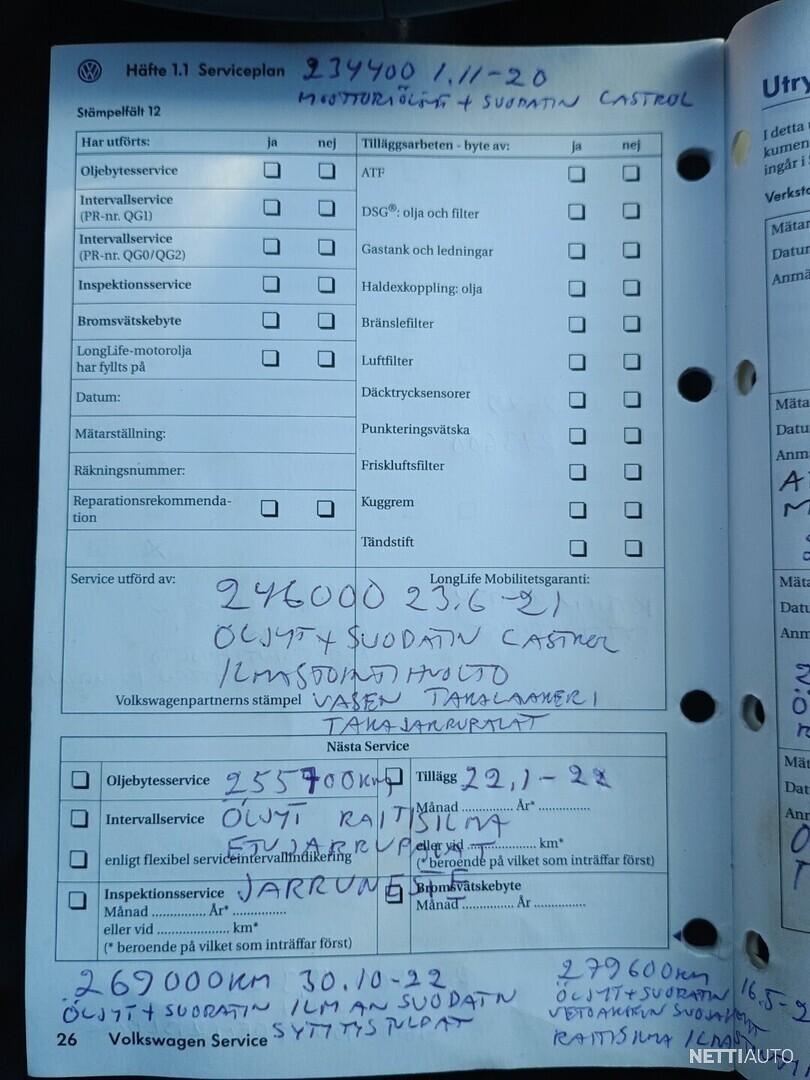 Häfte 1.1 Serviceplan 234400 1.11-20
MOOTTORIÖLJYT + SUODATIN CASTROL
Stämpelfält 12
Har utförts: ja nej
Tilläggsarbeten - byte av: ja nej
Oljebytesservice
ATF
Intervallservice
(PR-nr. QG1)
DSG®: olja och filter
Intervallservice
(PR-nr. QG0/QG2)
Gastank och ledningar
Inspektionsservice
Haldexkoppling: olja
Bromsvätskebyte
Bränslefilter
LongLife-motorolja
har fyllts på
Luftfilter
Datum:
Däcktrycksensorer
Mätarställning:
Punkteringsvätska
Räkningsnummer:
Friskluftsfilter
Reparationsrekommenda-
tion
Kuggrem
Tändstift
Service utförd av:
LongLife Mobilitetsgaranti:
246000 23.6-21
ÖLJYT + SUODATIN CASTROL
ILMASTOINTIHUOLTO
Volkswagenpartnerns stämpel VASEN TAKALAAKERI
TAKAJARRUPALAT
Nästa Service
Oljebytesservice 255700KM
Tillägg 22.1-22
Månad .............. År* ..............
Intervallservice ÖLJYT RAITISILMA
eller vid .................... km*
ETUJARRUPALAT
enligt flexibel serviceintervallindikering
(* beroende på vilket som inträffar först)
Inspektionsservice JARRUNESTE
Månad .............. År* ..............
eller vid .................... km*
(* beroende på vilket som inträffar först)
Bromsvätskebyte
Månad .............. År ..............
269000KM 30.10-22
ÖLJYT + SUODATIN ILMAN SUODATN
SYTYTYSTULPAT
279600KM 16.5-2
ÖLJYT + SUODATIN
RAITISILMA ILMAS
26 Volkswagen Service
Utry
I detta
kumen
ingår i
Verksta
Mätar
Datur
Anmä
Mäta
Datu
Anm
Mäta
Datu
Anm
Mät
Dat
Anr
NETTIAUTO